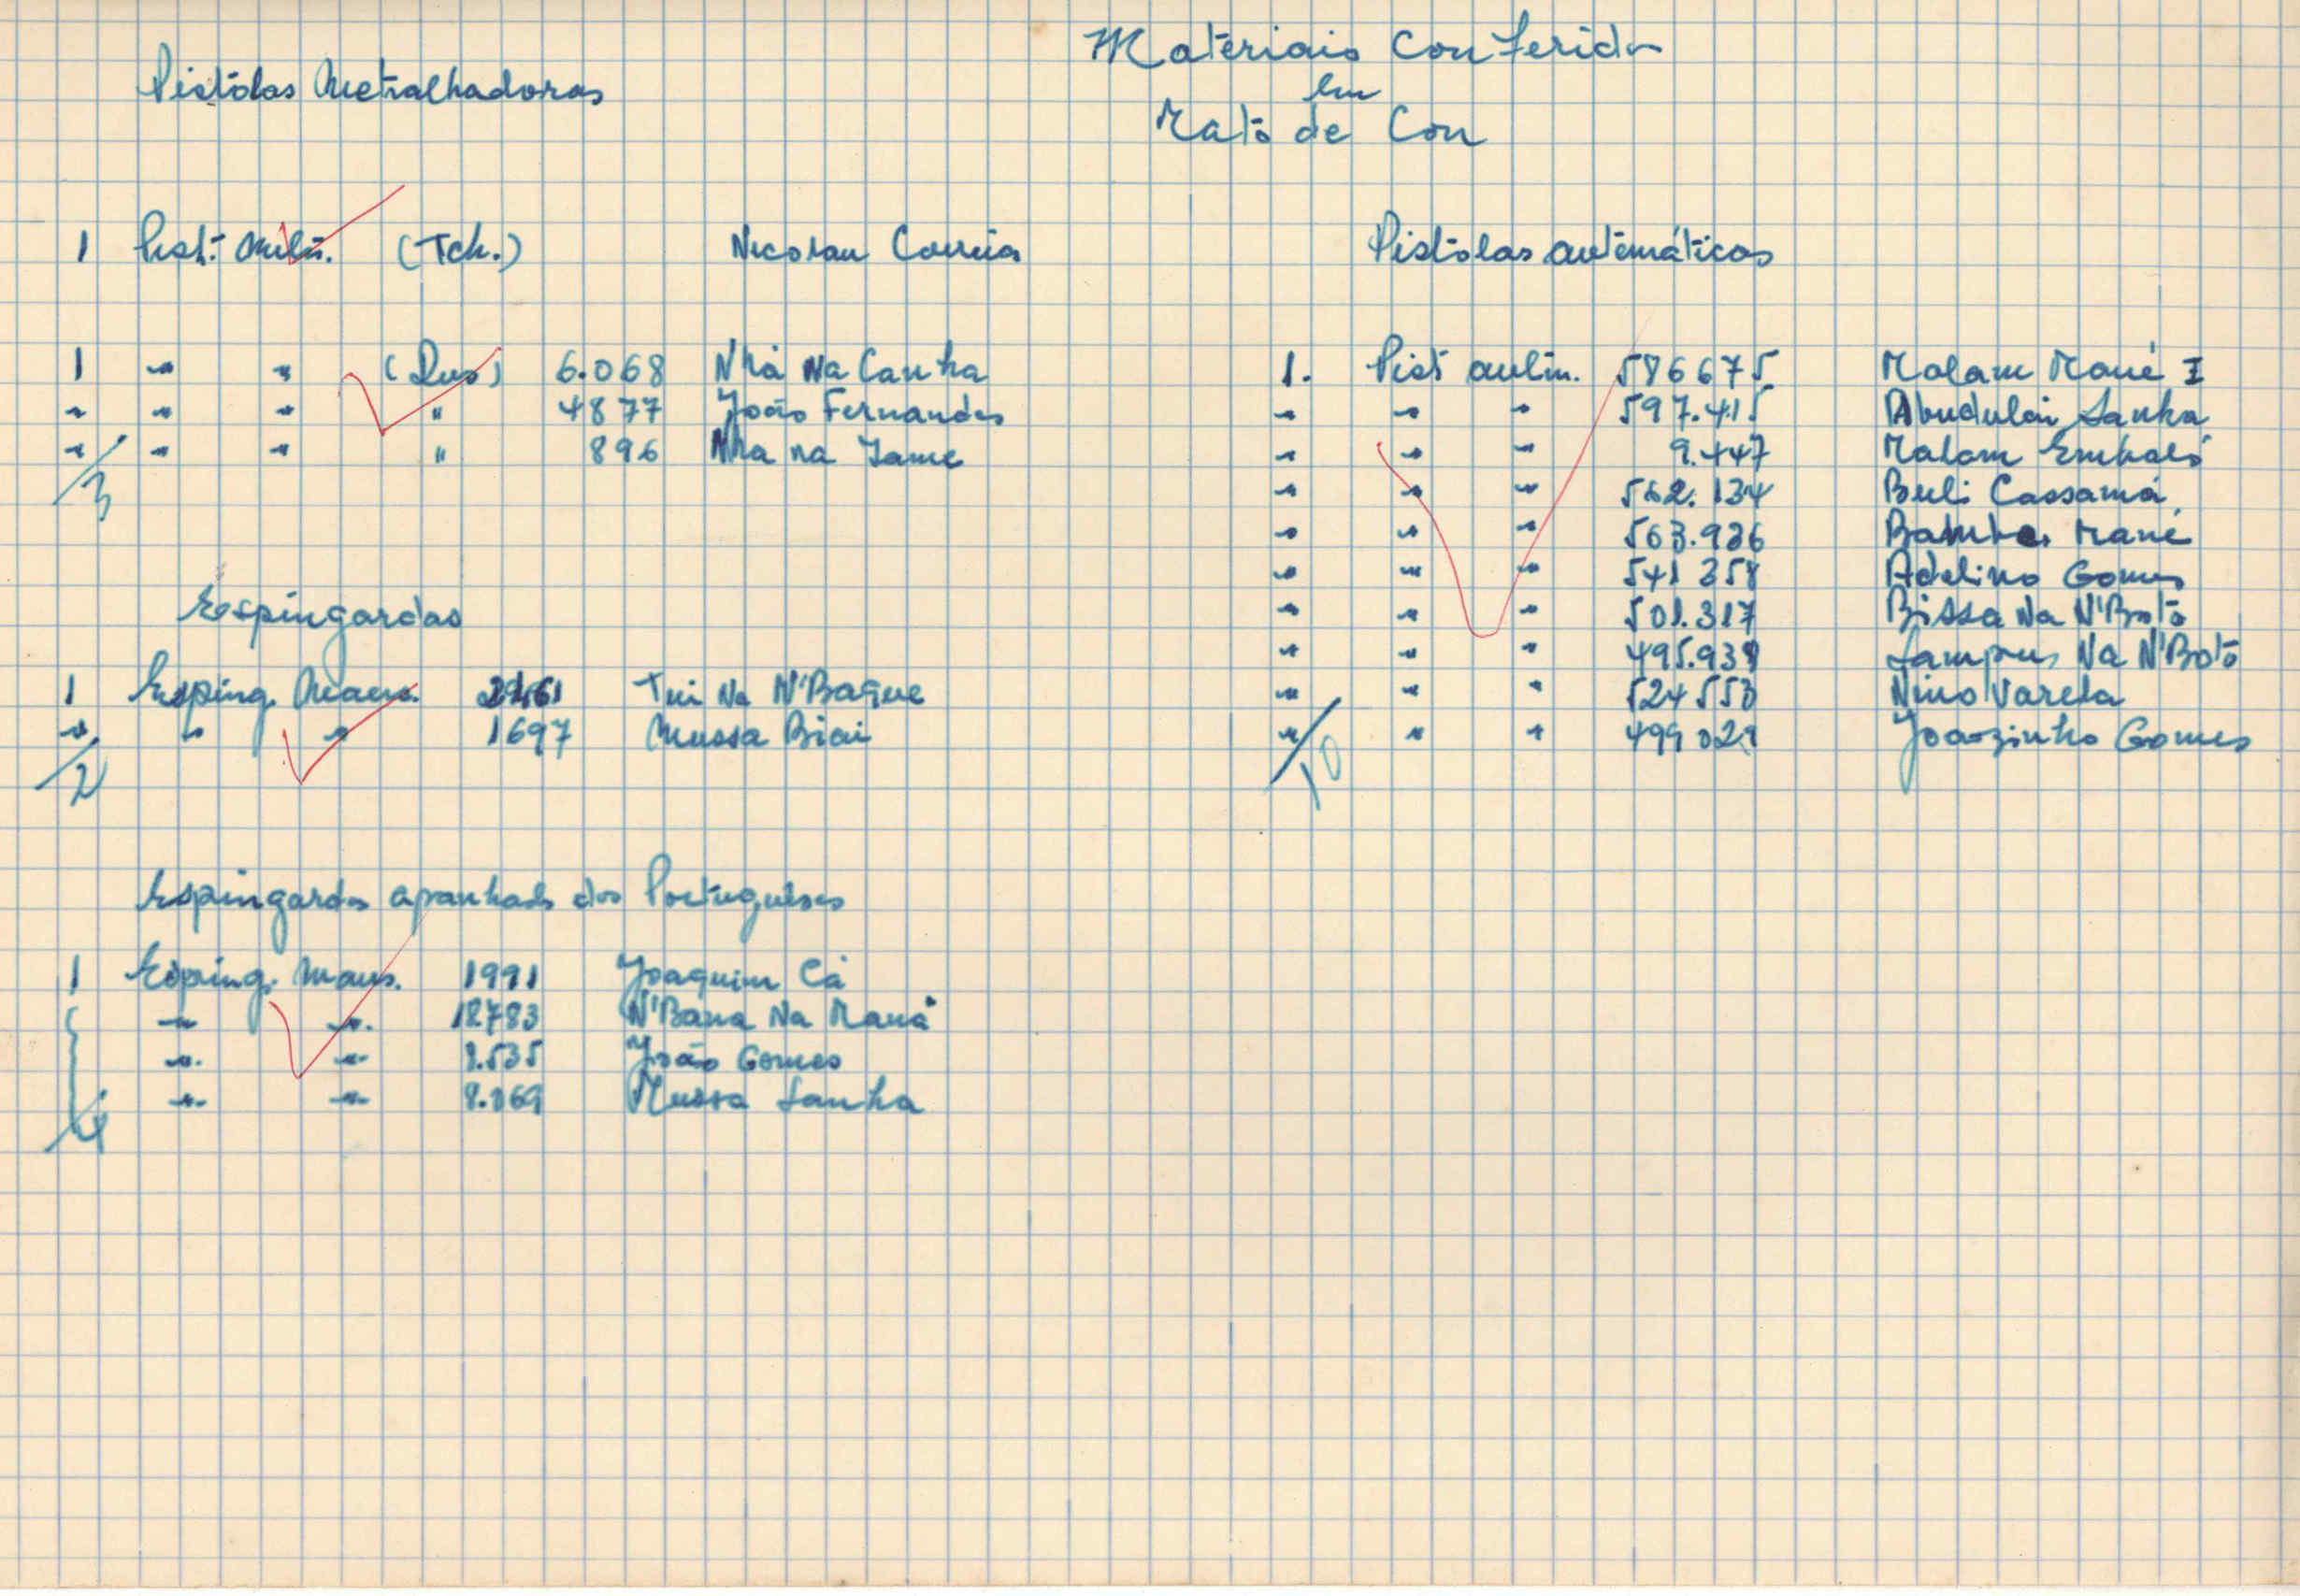 Materiais Conferidos
em
Mato de Con
Pistólas Metralhadoras
1 Pist. Metr. (Tch.) Nicolau Correia
1 " " (Rus) 6.068 Nhá Na Canha
" " " " 4877 João Fernandes
" " " " 896 Nha na Iame
3
Espingardas
1 Esping. Maus. Tui Na N'Baque
" " " 1697 Mussa Biai
2
Espingardas apanhads dos Portuguêses
1 Esping. Maus. 1991 Joaquim Cá
" " 12783 N'Bana Na Maná
" " 8.535 João Gomes
" " 8.069 Mussa Sanha
4
Pistólas automáticas
1. Pist autm. 586675 Malam Mané I
" " " 597.415 Abudulai Sanha
" " " 9.447 Malam Embaló
" " " 562.134 Buli Cassamá
" " " 563.926 Mané
" " " 541 358 Adelino Gomes
" " " 501.317 Bissa Na N'Botó
" " " 495.939 Na N'Botó
" " " 524 553 Nino Varela
" " " 499 029 Joãozinho Gomes
10